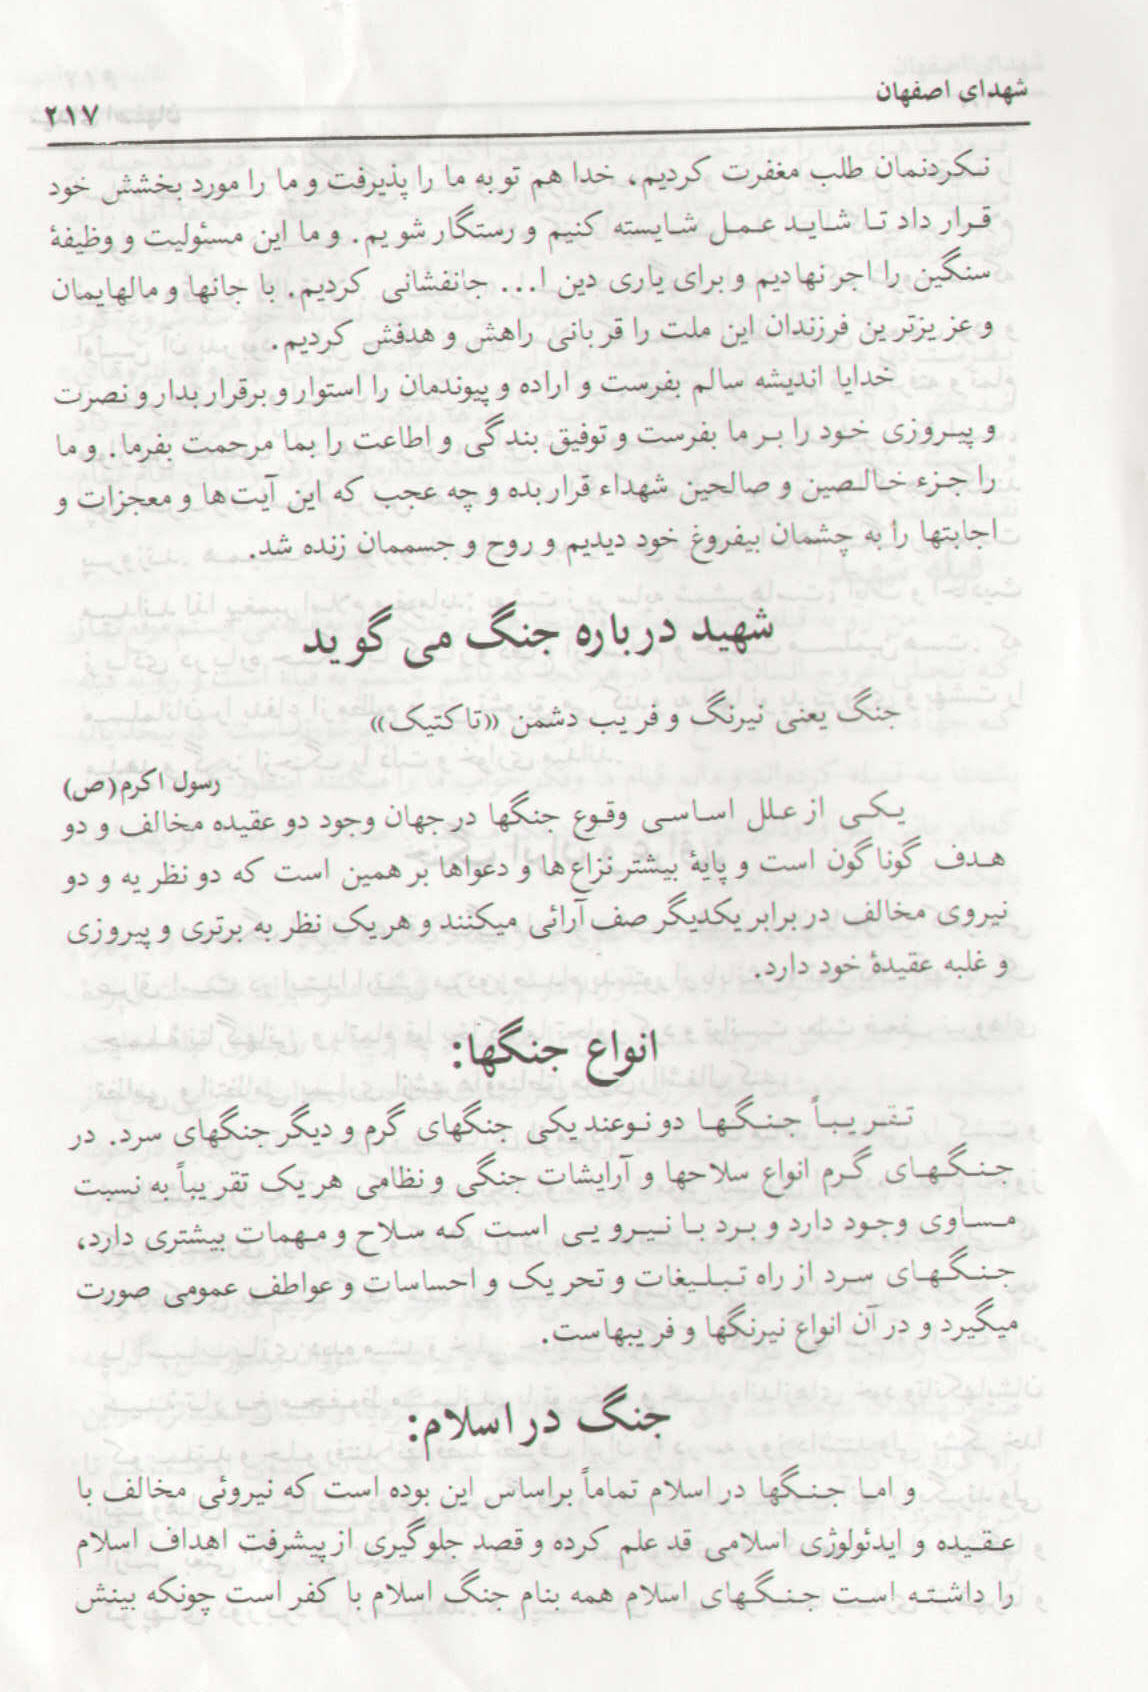 شهدای اصفهان
۲۱۷
نـکردنمان طلب مغفرت کردیم، خدا هم توبه ما را پذیرفت و ما را مورد بخشش خود
قـرار داد تـا شـایـد عـمـل شـایسته کنیم و رستگار شویم. و ما این مسئولیت و وظیفهٔ
سنگین را اجر نهادیم و برای یاری دین ا... جانفشانی کردیم. با جانها و مالهایمان
و عزیزترین فرزندان این ملت را قربانی راهش و هدفش کردیم.
خدایا اندیشه سالم بفرست و اراده و پیوندمان را استوار و برقرار بدار و نصرت
و پیـروزی خـود را بـر ما بفرست و توفیق بندگی و اطاعت را بما مرحمت بفرما. و ما
را جـزء خـالـصین و صالحین شهداء قرار بده و چه عجب که این آیت‌ها و معجزات و
اجابتها را به چشمان بیفروغ خود دیدیم و روح و جسممان زنده شد.
شهید درباره جنگ می گوید
جنگ یعنی نیرنگ و فریب دشمن «تاکتیک»
رسول اکرم(ص)
یـکـی از علل اسـاسـی وقـوع جنگها در جهان وجود دو عقیده مخالف و دو
هـدف گوناگون است و پایهٔ بیشتر نزاع‌ها و دعواها بر همین است که دو نظریه و دو
نیروی مخالف در برابر یکدیگر صف آرائی میکنند و هر یک نظر به برتری و پیروزی
و غلبه عقیدهٔ خود دارد.
انواع جنگها:
تـقـریـبـاً جـنـگـهـا دو نـوعند یکی جنگهای گرم و دیگر جنگهای سرد. در
جـنـگـهـای گـرم انواع سلاحها و آرایشات جنگی و نظامی هر یک تقریباً به نسبت
مـسـاوی وجـود دارد و بـرد بـا نـیـرویـی اسـت کـه سـلاح و مـهمات بیشتری دارد،
جـنـگـهـای سـرد از راه تـبـلـیغات و تحریک و احساسات و عواطف عمومی صورت
میگیرد و در آن انواع نیرنگها و فریبهاست.
جنگ در اسلام:
و امـا جـنـگها در اسلام تماماً براساس این بوده است که نیروئی مخالف با
عـقـیده و ایدئولوژی اسلامی قد علم کرده و قصد جلوگیری از پیشرفت اهداف اسلام
را داشـتـه اسـت جـنـگـهای اسلام همه بنام جنگ اسلام با کفر است چونکه بینش